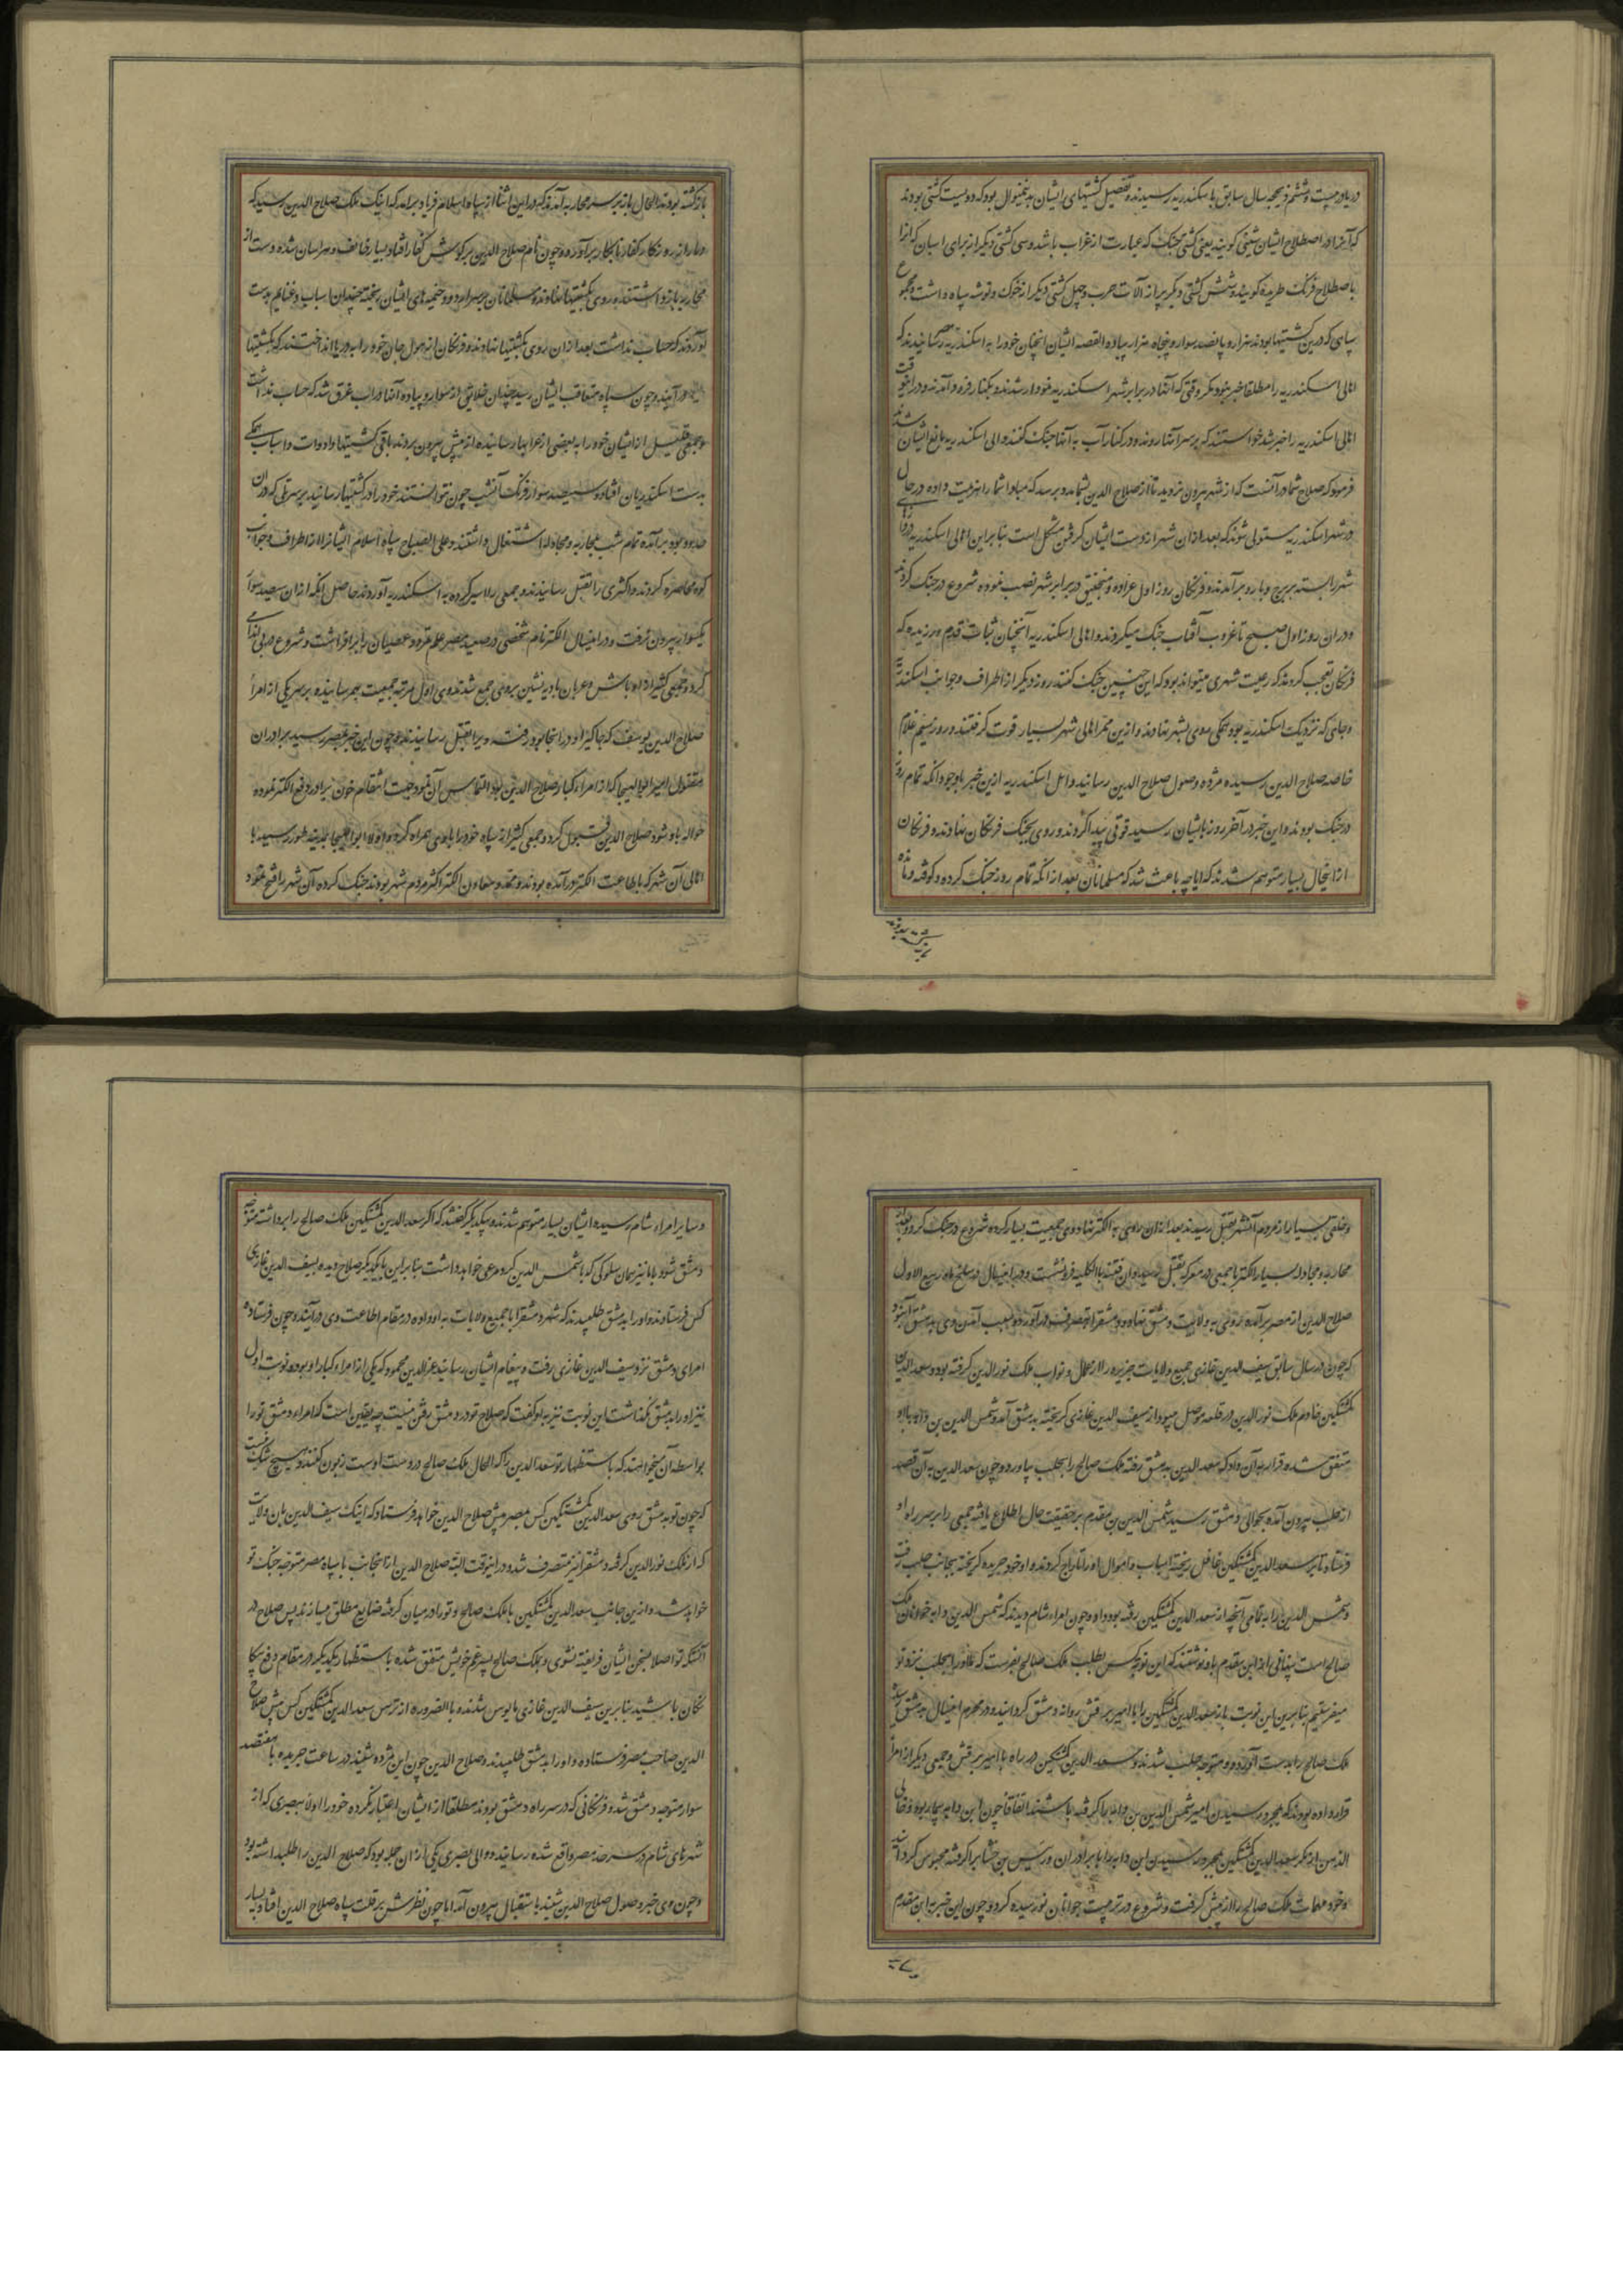 دریا در بیست و ششم ذیحجه سال سابق باسکندریه رسیدند و تفصیل کشتیهای ایشان بدینمنوال بود که دویست کشتی بودند
که آنرا در اصطلاح ایشان شینی گویند یعنی کشتی جنگ که عبارت از غراب باشد و سی کشتی دیگر از برای اسبان که آنرا
باصطلاح فرنگ طریده گویند و شش کشتی دیگر پر از آلات حرب و چهل کشتی دیگر از خوراک و توشه سپاه داشت و مجموع
سپاهی که درین کشتیها بودند هزار و پانصد سوار و پنجاه هزار پیاده القصه ایشان آنچنان خود را به اسکندریه رسانیدند که
اهالی اسکندریه را مطلقا خبر نبود مگر وقتی که آنها در برابر شهر اسکندریه نمودار شدند و بکنار فرود آمدند و در آنوقت
اهالی اسکندریه را خبر شد خواستند که بر سر آنها روند و در کنار آب به آنها جنگ کنند والی اسکندریه مانع ایشان شد
فرمود که صلاح شما در آنست که از شهر بیرون نروید تا از صلاح الدین بشما مدد برسد که مبادا شما را هزیمت داده در حال
در شهر اسکندریه مستولی شوند که بعد از آن شهر از دست ایشان گرفتن مشکل است بنابراین اهالی اسکندریه
شهر را بسته ببرج و بارو برآمدند و فرنگان روز اول عراده و منجنیق در برابر شهر نصب نموده شروع در جنگ کردند
و در آن روز اول صبح تا غروب آفتاب جنگ میکردند و اهالی اسکندریه آنچنان ثبات قدم ورزیدند که
فرنگان تعجب کردند که رعیت شهری میتواند بود که این چنین جنگ کنند روز دیگر از اطراف و جوانب اسکندریه
و جاهای که نزدیک اسکندریه بود همگی روی بشهر نهادند و ازین ممر اهالی شهر بسیار قوت گرفتند و روز سیم غلام
خاصه صلاح الدین رسیده مژده وصول صلاح الدین رسانید و اهل اسکندریه ازین خبر باوجود آنکه تمام روز
در جنگ بودند و این خبر در آخر روز بایشان رسید قوتی پیدا کردند و روی بجنگ فرنگان نهادند و فرنگان
ازین حال بسیار متوهم شدند که آیا چه باعث شد که مسلمانان بعد از آنکه تمام روز جنگ کرده و کوفته و مانده
بازگشته بودند
بازگشته بودند الحال باز بر سر محاربه آمدند که در این اثنا از سپاه اسلام فریاد برآمد که اینک ملک صلاح الدین رسید که
دمار از روزگار کفار نابکار برآورد و چون نام صلاح الدین بر گوش کفار افتاد بسیار خائف و هراسان شده دست از
محاربه بازداشتند و روی بکشتیها نهادند و مسلمانان بر سر اردو و خیمه های ایشان ریخته چندان اسباب و غنایم بدست
آوردند که حساب نداشت بعد از آن روی بکشتیها نهادند و فرنگان از هول جان خود را بدریا انداختند که بکشتیها
درآیند و چون سپاه متعاقب ایشان رسید چندان خلایق از سوار و پیاده آنها در آب غرق شد که حساب نداشت
و جمعی قلیل از ایشان خود را به بعضی از غرابها رسانیده از پیش بیرون بردند باقی کشتیها و ادوات و اسباب همگی
بدست اسکندریان افتاد و سیصد سوار فرنگ آنشب چون نتوانستند خود را در کشتیها رسانید بر سر تلی که در آن
حدود بود برآمده تمام شب بمحاربه و مجادله اشتغال داشتند و علی الصباح سپاه اسلام ایشانرا از اطراف و جوانب
کوه محاصره کردند و اکثری را بقتل رسانیدند و جمعی را اسیر کرده به اسکندریه آوردند حاصل آنکه از آن سیصد سوار
یکسوار بیرون نرفت و در اینسال الکنز نام شخصی در صعید مصر علم تمرد و عصیان را برافراشت و شروع در بی اندامی
کرد و جمعی کثیر از اوباش و عربان بادیه نشین بروی جمع شدند وی اول مرتبه جمعیت بهم رسانیده بر سر یکی از امراء
صلاح الدین یوسف که جاگیر او در آنجا بود رفت و ویرا بقتل رسانید و چون این خبر بمصر رسید برادران
مقتول امیر ابوالهیجا که از امراء کبار صلاح الدین بود التماس آن نمود جهت انتقام خون برادر دفع الکنز نموده
حواله باو شود صلاح الدین قبول کرد و جمعی کثیر از سپاه خود را با وی همراه کرد و اولا ابوالهیجا بمدینه طود رسید با
اهالی آن شهر که باطاعت الکنز درآمده بودند و ممد و معاون الکنز اکثر مردم شهر بودند جنگ کرده آن شهر را فتح نمود
و خلقی بسیار از مردم آنشهر بقتل رسید بعد از آن روی به الکنز نهاد وی جمعیت بسیار کرده شروع در جنگ کرد و بعد از
محاربه و مجادله بسیار الکنز با جمعی در معرکه بقتل رسید و آن فتنه بالکلیه فرو نشست و در اینسال در سلخ ماه ربیع الاول
صلاح الدین از مصر برآمده روی به ولایت دمشق نهاد و دمشق را بتصرف درآورد و سبب آمدن وی بدمشق آن بود
که چون در سال سابق سیف الدین غازی جمیع ولایات جزیره را از عمال و نواب ملک نورالدین گرفته بود و سعدالدین
کمشتکین خادم ملک نورالدین در قلعه موصل میبود از سیف الدین غازی گریخته بدمشق آمد و شمس الدین بن دایه با او
متفق شده قرار به آن داد که سعد الدین بدمشق رفته ملک صالح را بحلب بیاورد و چون سعد الدین به آن قصد
از حلب بیرون آمده بحوالی دمشق رسید شمس الدین بن مقدم بر حقیقت حال اطلاع یافته جمعی را بر سر راه او
فرستاد تا بر سر سعد الدین کمشتکین غافل ریخته اسباب و اموال او را تاراج کردند و او خود جریده گریخته بجانب حلب رفت
و شمس الدین را به تمامی آنچه از سعد الدین کمشتکین رفته بود داد و چون امراء شام دیدند که شمس الدین دایه خواهان ملک
صالح است بنفاق با ابن مقدم باو نوشتند که این نوبه کس بطلب ملک صالح بفرست که ما او را بحلب نزد تو
میفرستیم بنابرین این نوبت باز سعد الدین کمشتکین را با امیر بربقش روانه دمشق گردانید و در محرم اینسال بدمشق رسید
ملک صالح را بدست آورده و متوجه حلب شدند و سعد الدین کمشتکین در راه با امیر بربقش و جمعی دیگر از امرا
قرار داده بودند که بمجرد رسیدن امیر شمس الدین بن دایه را گرفته باشند اتفاقا چون ابن دایه بیمار بود و خالی
الذهن از مکر سعد الدین کمشتکین بمجرد رسیدن ابن دایه را با برادران و رئیس بن خشاب را گرفته محبوس گردانید
و خود مهمات ملک صالح را از پیش گرفت و شروع در تربیت جوانان نورسیده کرد و چون این خبر به ابن مقدم
و سایر امراء شام رسید ایشان بسیار متوهم شدند و بیکدیگر گفتند که اگر سعد الدین کمشتکین ملک صالح را برداشته متوجه
دمشق شود با ما نیز همان سلوکی که با شمس الدین کرد مرعی خواهد داشت بنابراین با یکدیگر صلاح دیده بسیف الدین غازی
کس فرستادند و او را بدمشق طلبیدند که شهر دمشق را با جمیع ولایات به او داده در مقام اطاعت وی درآیند و چون فرستاده
امرای دمشق نزد سیف الدین غازی رفت و پیغام ایشان رسانید عزالدین محمود که یکی از امراء کبار او بود و نوبت اول
نیز او را بدمشق نگذاشت این نوبت نیز به او گفت که صلاح تو در دمشق رفتن نیست چه یقین است که امراء دمشق تو را
بواسطه آن میخواهند که باستظهار تو سعد الدین را که الحال ملک صالح در دست اوست زبون کنند و هیچ شک نیست
که چون تو به دمشق روی سعد الدین کمشتکین کس بمصر پیش صلاح الدین خواهد فرستاد که اینک سیف الدین بآن ولایت
که از ملک نورالدین گرفته دمشق را نیز متصرف شد و در اینوقت البته صلاح الدین از آنجانب با سپاه مصر متوجه جنگ تو
خواهد شد و ازین جانب سعد الدین کمشتکین با ملک صالح و تو را در میان گرفته ضایع مطلق میسازند پس صلاح در
آنستکه تو اصلا بسخن ایشان فریفته نشوی و بملک صالح پسر عم خویش متفق شده باستظهار یکدیگر در مقام دفع بیگا
نگان باشید بنابرین سیف الدین غازی مایوس شدند و بالضروره از ترس سعد الدین کمشتکین کس پیش صلاح
الدین صاحب مصر فرستاده و او را بدمشق طلبیدند و صلاح الدین چون این مژده شنید در ساعت جریده با هفتصد
سوار متوجه دمشق شد و فرنگانی که در سر راه دمشق بودند مطلقا از ایشان اعتبار نکرده خود را اولا ببصری که از
شهرهای شام در سرحد مصر واقع شده رسانید و والی بصری یکی از آن جمله بود که صلاح الدین را طلب داشته بود
و چون وی خبر وصول صلاح الدین شنید باستقبال بیرون آمد اما چون نظرش بر قلت سپاه صلاح الدین افتاد بسیار